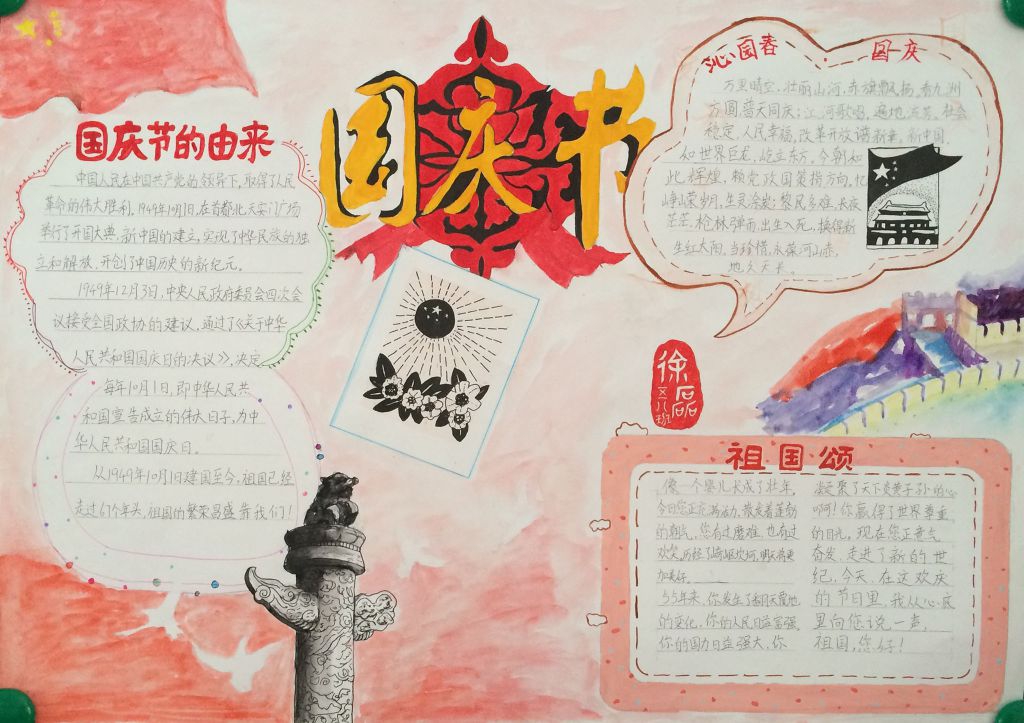 国庆节
国庆节的由来
中国人民在中国共产党的领导下,取得了人民
革命的伟大胜利。1949年10月1日,在首都北京天安门广场
举行了开国大典,新中国的建立,实现了中华民族的独
立和解放,开创了中国历史的新纪元。
1949年12月3日,中央人民政府委员会四次会
议接受全国政协的建议,通过了《关于中华
人民共和国国庆日的决议》,决定
每年10月1日,即中华人民共
和国宣告成立的伟大日子,为中
华人民共和国国庆日。
从1949年10月1日建国至今,祖国已经
走过61个年头,祖国的繁荣昌盛靠我们!
沁园春·国庆
万里晴空,壮丽山河,赤旗飘扬,看九州
方圆,普天同庆;江河歌唱,遍地流芳,社会
稳定,人民幸福,改革开放谱新章,新中国
如世界巨龙,屹立东方,今朝如
此辉煌,赖党政国策指方向,忆
峥嵘岁月,生灵涂炭;黎民多难,长夜
茫茫,枪林弹雨,出生入死,换得新
生红太阳,当珍惜,永葆河山赤,
地久天长。
徐磊
八班
祖国颂
像一个婴儿长成了壮年,
今日您正充满活力,散发着蓬勃
的朝气,您有过磨难,也有过
欢笑,历经了崎岖坎坷,明天将更
加美好。
55年来,你发生了翻天覆地
的变化,你的人民日益富强,
你的国力日益强大,你
凝聚了天下炎黄子孙的心
啊!你赢得了世界尊重
的目光,现在您正意气
奋发,走进了新的世
纪,今天,在这欢庆
的节日里,我从心底
里向您说一声,
祖国,您好!